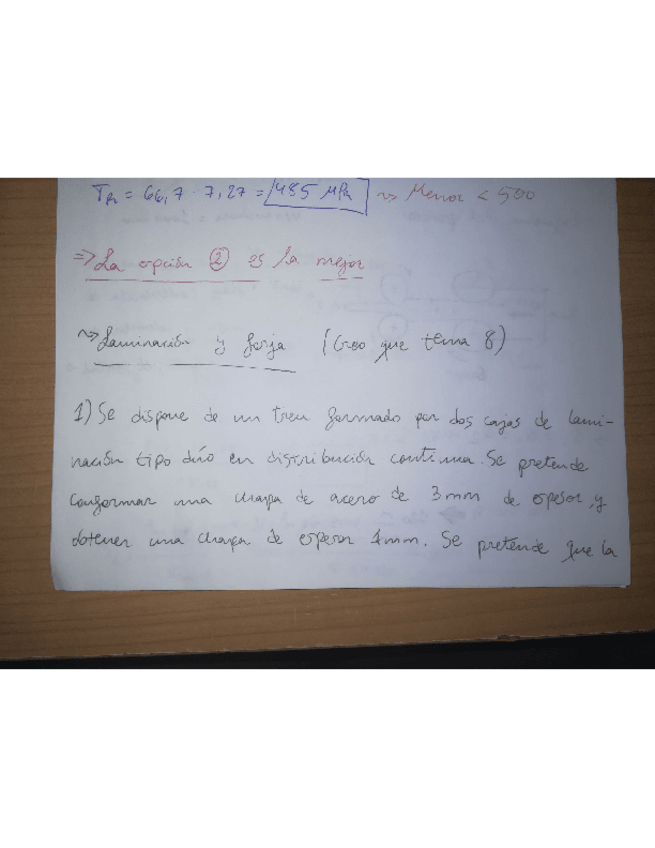 TR = 66,7 · 7,27 = 485 MPa ~> Menor < 500
=> La opción ② es la mejor
~> Laminación y forja (Creo que tema 8)
1) Se dispone de un tren formado por dos cajas de lami-
nación tipo dúo en distribución continua. Se pretende
conformar una chapa de acero de 3 mm de espesor, y
obtener una chapa de espesor 1 mm. Se pretende que la